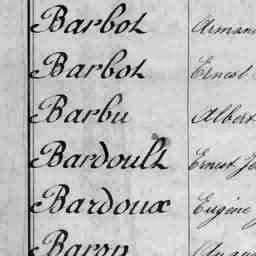 Barbot Arman
Barbot Ernest
Barbu Albert
Bardoult Ernest Jo
Bardoux Eugène J
Baron Augu